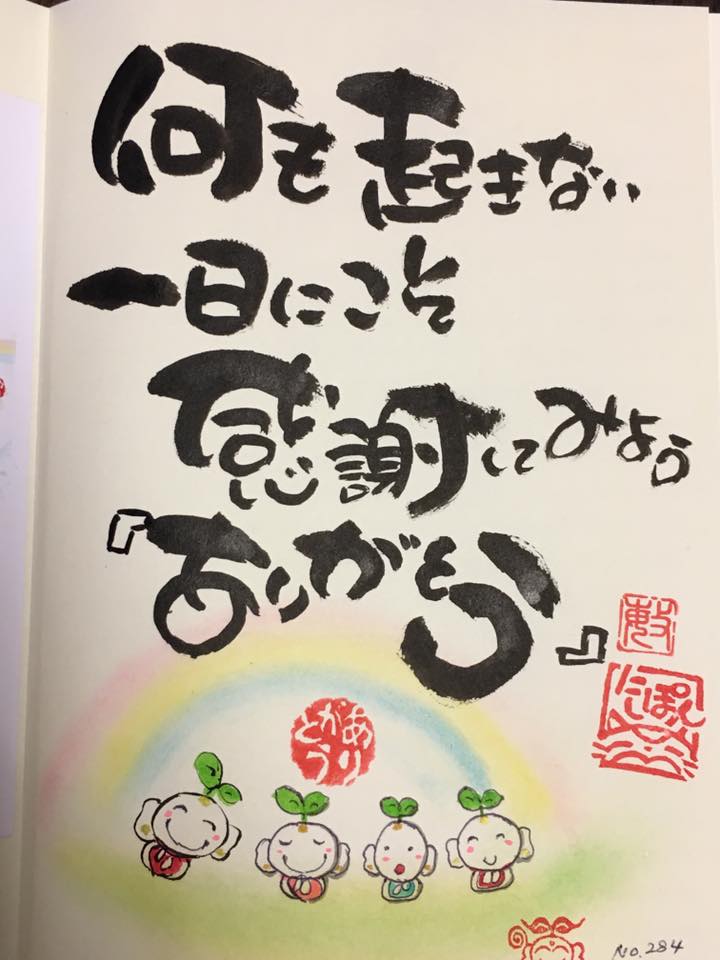 何も起きない
一日にこそ
感謝してみよう
『ありがとう』
ありがとう
No.284